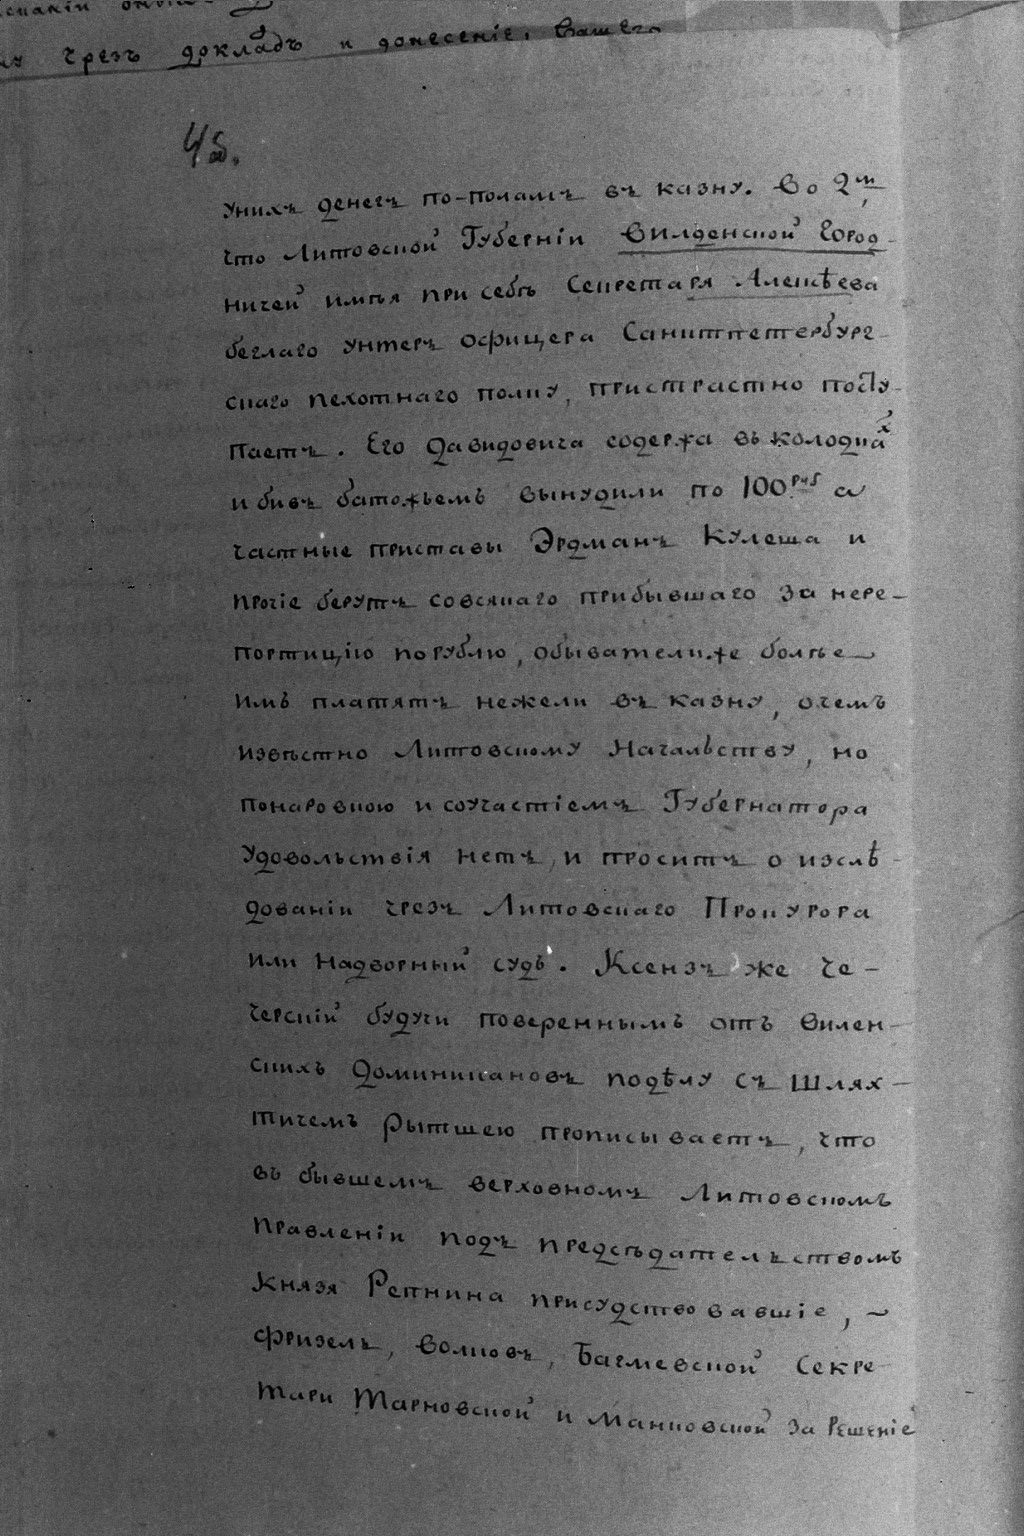 чрезъ докладъ и донесеніе, Вашего
45.
унихъ денегъ по-поламъ въ казну. Во 2м,
что Литовской Губерніи Вилденской Город-
ничей имѣя при себѣ Секретаря Алексѣева
беглаго унтеръ офицера Санктпетербург-
скаго пехотнаго полку, пристрастно посту-
паетъ. Его Давидовича содержа въ колодках
и бивъ батожьемъ вынудили по 100 руб а
частные приставы Эрдманъ Кулеша и
прочіе берутъ совсякаго прибывшаго за нере-
портицію порублю, обывателиже более
имъ платятъ нежели въ казну, очемъ
извѣстно Литовскому Начальству, но
понаровкою и соучастіемъ Губернатора
удовольствія нетъ, и проситъ о изслѣ-
дованіи чрезъ Литовскаго Прокурора
или надворный судъ. Ксензъ же Че-
черскій будучи повереннымъ отъ Вилен-
скихъ Доминикановъ подѣлу съ Шлях-
тичемъ Рытшею прописываетъ, что
въ бывшемъ верховномъ Литовскомъ
Правленіи подъ предсѣдательствомъ
Князя Репнина присудствовавшіе, ~
Фризель, Волковъ, Багмевской Секре-
тари Тарновской и Манковской за решеніе